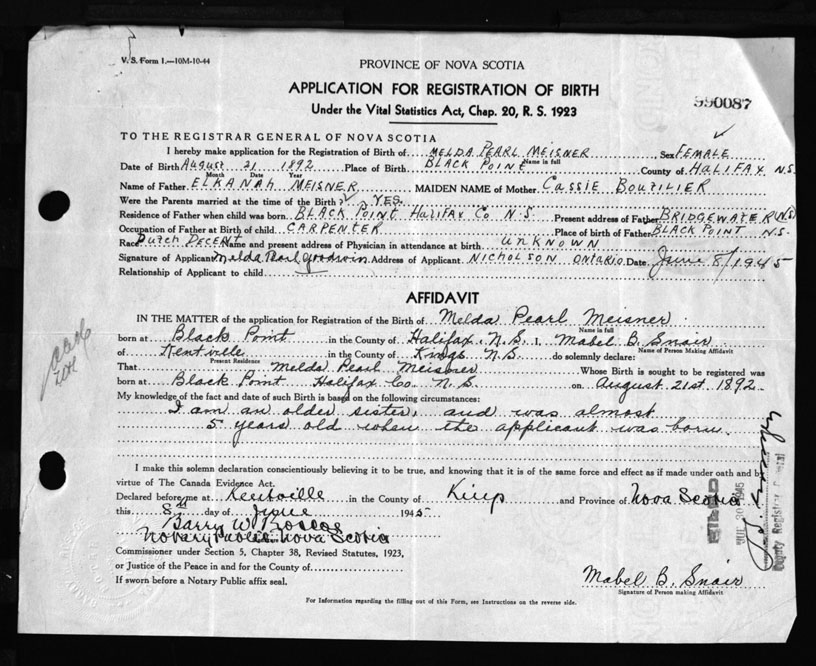 V. S. Form 1.—10M-10-44
PROVINCE OF NOVA SCOTIA
APPLICATION FOR REGISTRATION OF BIRTH
990087
Under the Vital Statistics Act, Chap. 20, R. S. 1923
TO THE REGISTRAR GENERAL OF NOVA SCOTIA
I hereby make application for the Registration of Birth of MELDA PEARL MEISNER Sex FEMALE
Date of Birth August 21 1892 Place of Birth BLACK POINT County of HALIFAX N.S.
Month Date Year
Name of Father ELKANAH MEISNER MAIDEN NAME of Mother CASSIE BOUTILIER
Were the Parents married at the time of the Birth? YES
Residence of Father when child was born BLACK POINT HALIFAX CO N.S. Present address of Father BRIDGEWATER (NS)
Occupation of Father at Birth of child CARPENTER Place of birth of Father BLACK POINT N.S.
Race DUTCH DECENT Name and present address of Physician in attendance at birth UNKNOWN
Signature of Applicant Melda Pearl Goodwin Address of Applicant NICHOLSON ONTARIO Date June 8/1945
Relationship of Applicant to child
AFFIDAVIT
IN THE MATTER of the application for Registration of the Birth of Melda Pearl Meisner
Name in full
born at Black Point in the County of Halifax, N.S. I, Mabel B. Snair
Name of Person Making Affidavit
of Kentville in the County of Kings N.S. do solemnly declare:
Present Residence
That Melda Pearl Meisner Whose Birth is sought to be registered was
born at Black Point Halifax Co. N.S. on August 21st 1892.
My knowledge of the fact and date of such Birth is based on the following circumstances:
I am an older sister, and was almost
5 years old when the applicant was born.
I make this solemn declaration conscientiously believing it to be true, and knowing that it is of the same force and effect as if made under oath and by
virtue of The Canada Evidence Act.
Declared before me at Kentville in the County of Kings and Province of Nova Scotia
this 8th day of June 1945
Barry W Roscoe
Notary Public Nova Scotia
Commissioner under Section 5, Chapter 38, Revised Statutes, 1923,
or Justice of the Peace in and for the County of
If sworn before a Notary Public affix seal.
Mabel B. Snair
Signature of Person making Affidavit
For Information regarding the filling out of this Form, see Instructions on the reverse side.
FILED
JUL 30 1945
Deputy Registrar General